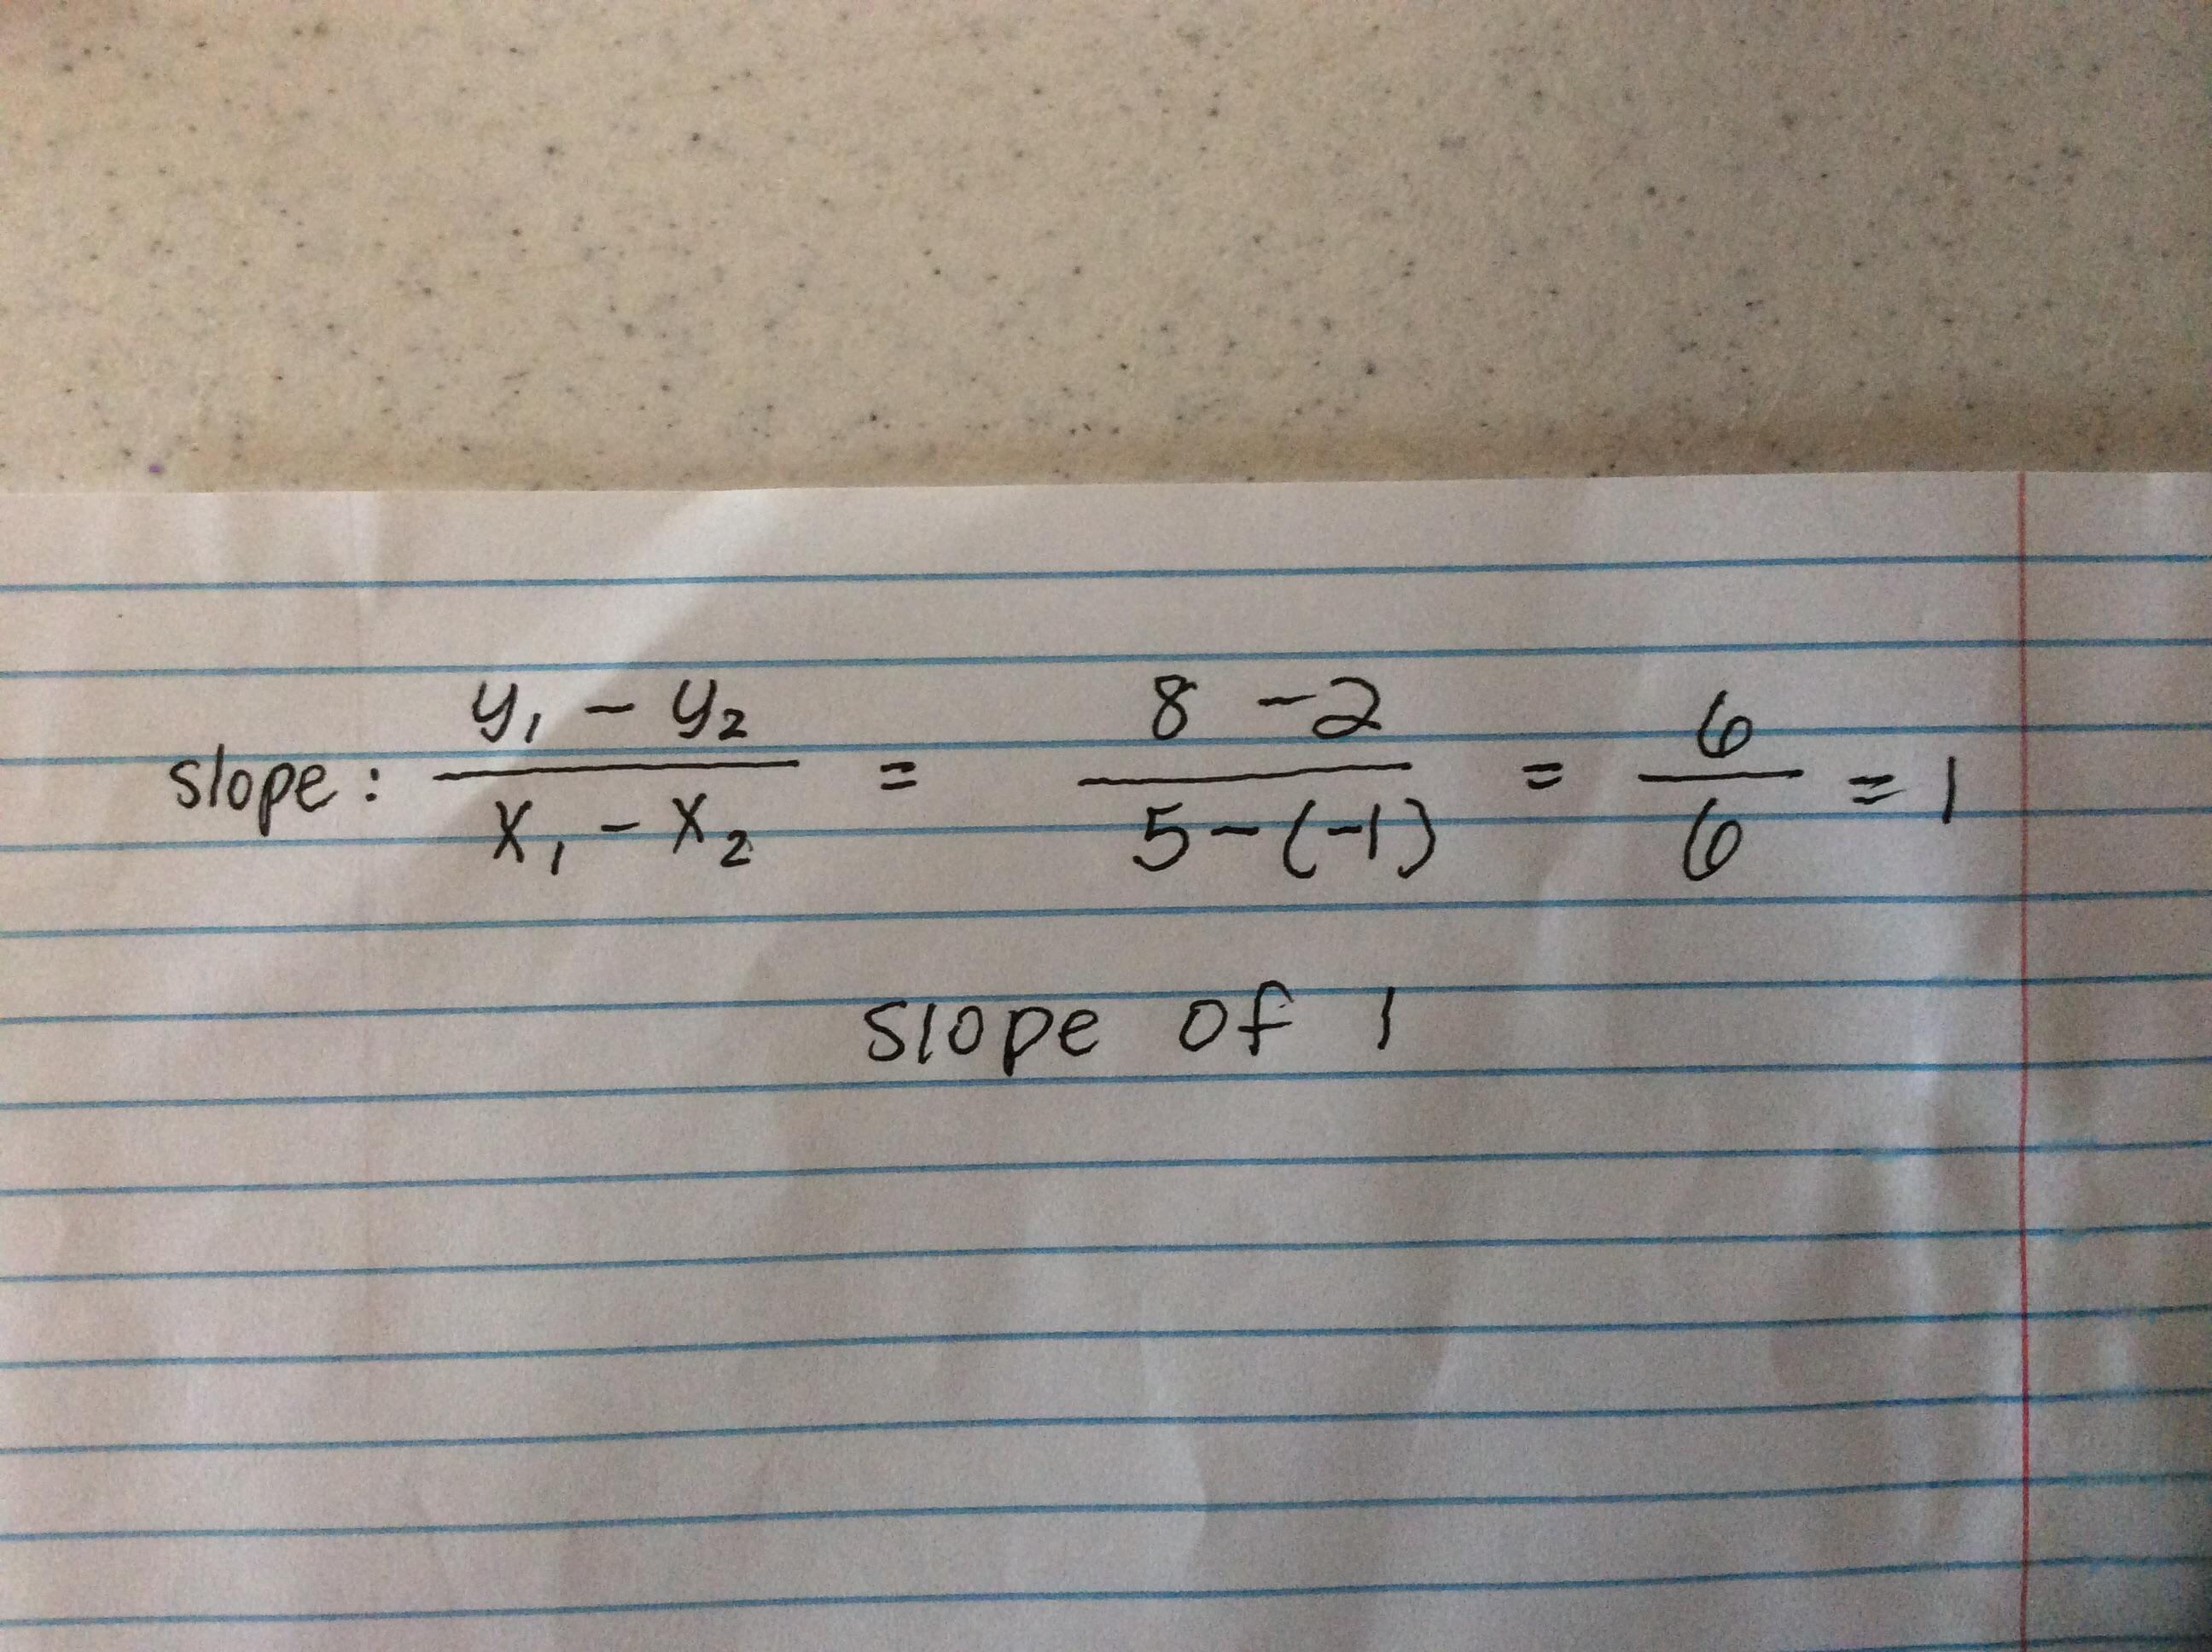 slope: y₁ - y₂ / x₁ - x₂ = 8 - 2 / 5 - (-1) = 6 / 6 = 1
slope of 1